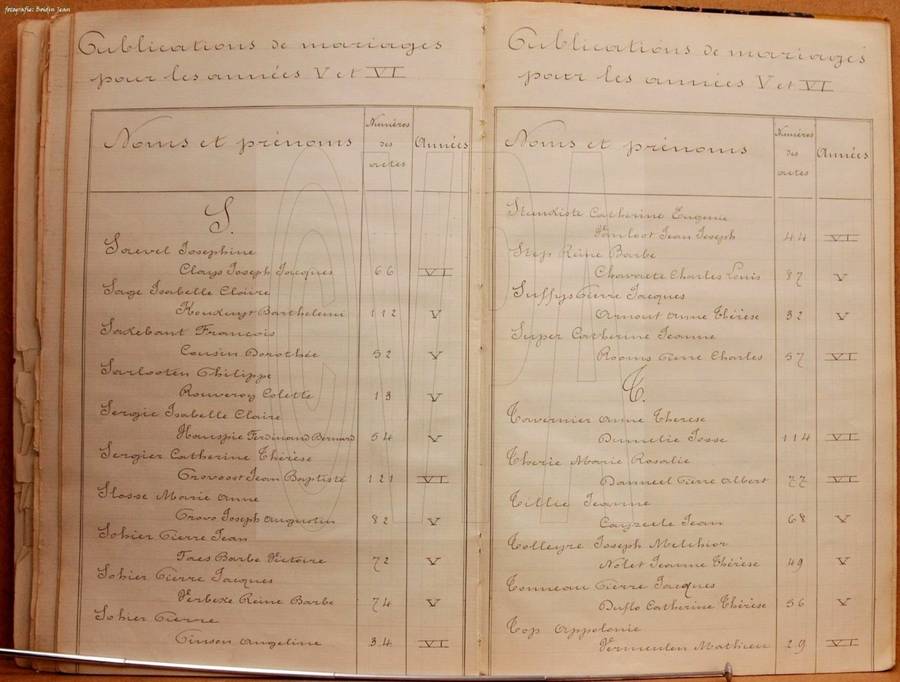 fotografie: Boidin Jean
Publications de mariages
pour les années V et VI
Noms et prénoms
Numéros des actes
Années
S.
Saevel Josephine
Clays Joseph Jacques 66 VI
Sage Isabelle Claire
Koukuyt Barthelemi 112 V
Sakebant Francois
Cousin Dorothée 52 V
Sarlooten Philippe
Rouveroy Colette 13 V
Sergie Isabelle Claire
Hauspie Ferdinand Bernard 54 V
Sergier Catherine Thérèse
Provoost Jean Baptiste 121 VI
Slosse Marie Anne
Provo Joseph Augustin 82 V
Sohier Pierre Jean
Faes Barbe Victoire 72 V
Sohier Pierre Jacques
Verbeke Reine Barbe 74 V
Sohier Pierre
Pinson Angeline 34 VI
Publications de mariages
pour les années V et VI
Noms et prénoms
Numéros des actes
Années
Standiste Catherine Eugenie
Jean Joseph 44 VI
Step Reine Barbe
Chavaete Charles Louis 87 V
Suffys Pierre Jacques
Arnout Anne Thérèse 32 V
Super Catherine Jeanne
Rooms Pierre Charles 57 VI
T.
Tavernier Anne Therese
Dumelie Josse 114 VI
Therie Marie Rosalie
Danneel Pierre Albert 77 VI
Tillie Jeanne
Cayzeele Jean 68 V
Tolleyre Joseph Melchior
Nolet Jeanne Thérèse 49 V
Tonneau Pierre Jacques
Duflo Catherine Thérèse 56 V
Top Appolonie
Vermeulen Mathieu 29 VI